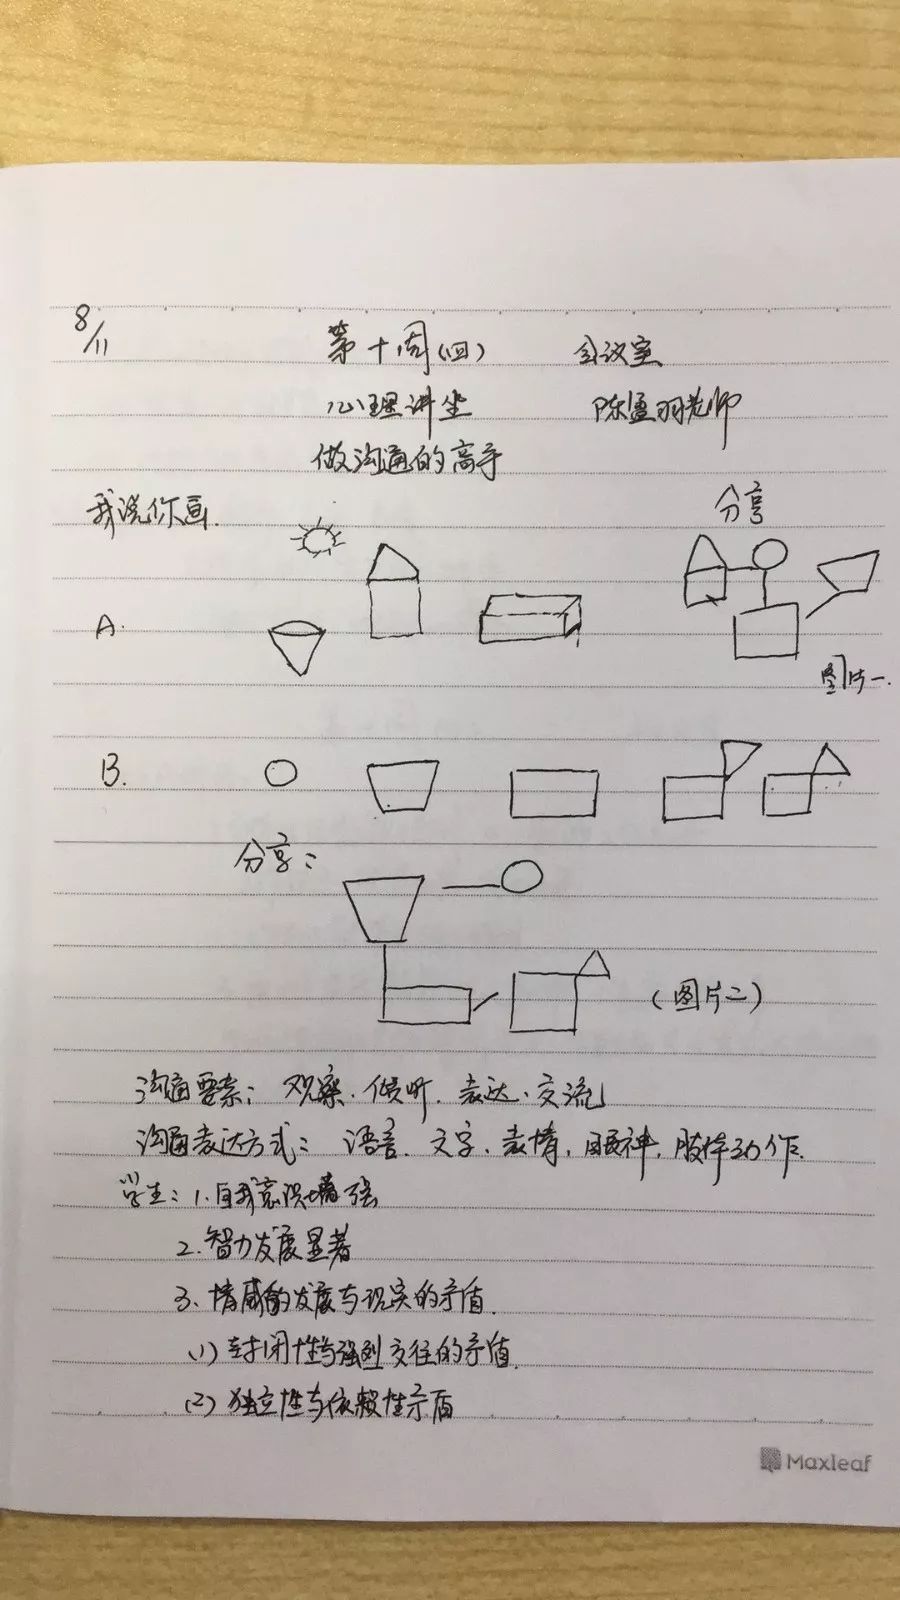 8/11
第十周(四) 会议室
心理讲坐 陈 羽老师
做沟通的高手
我说你画. 分享
A.
图片一.
B.
分享:
(图片二)
沟通要素: 观察.倾听.表达、交流
沟通表达方式: 语言.文字、表情,眼神,肢体动作.
学生: 1.自我意识增强
2.智力发展显著
3、情感的发展与现实的矛盾.
(1)封闭性与强烈交往的矛盾.
(2)独立性与依赖性矛盾
Maxleaf